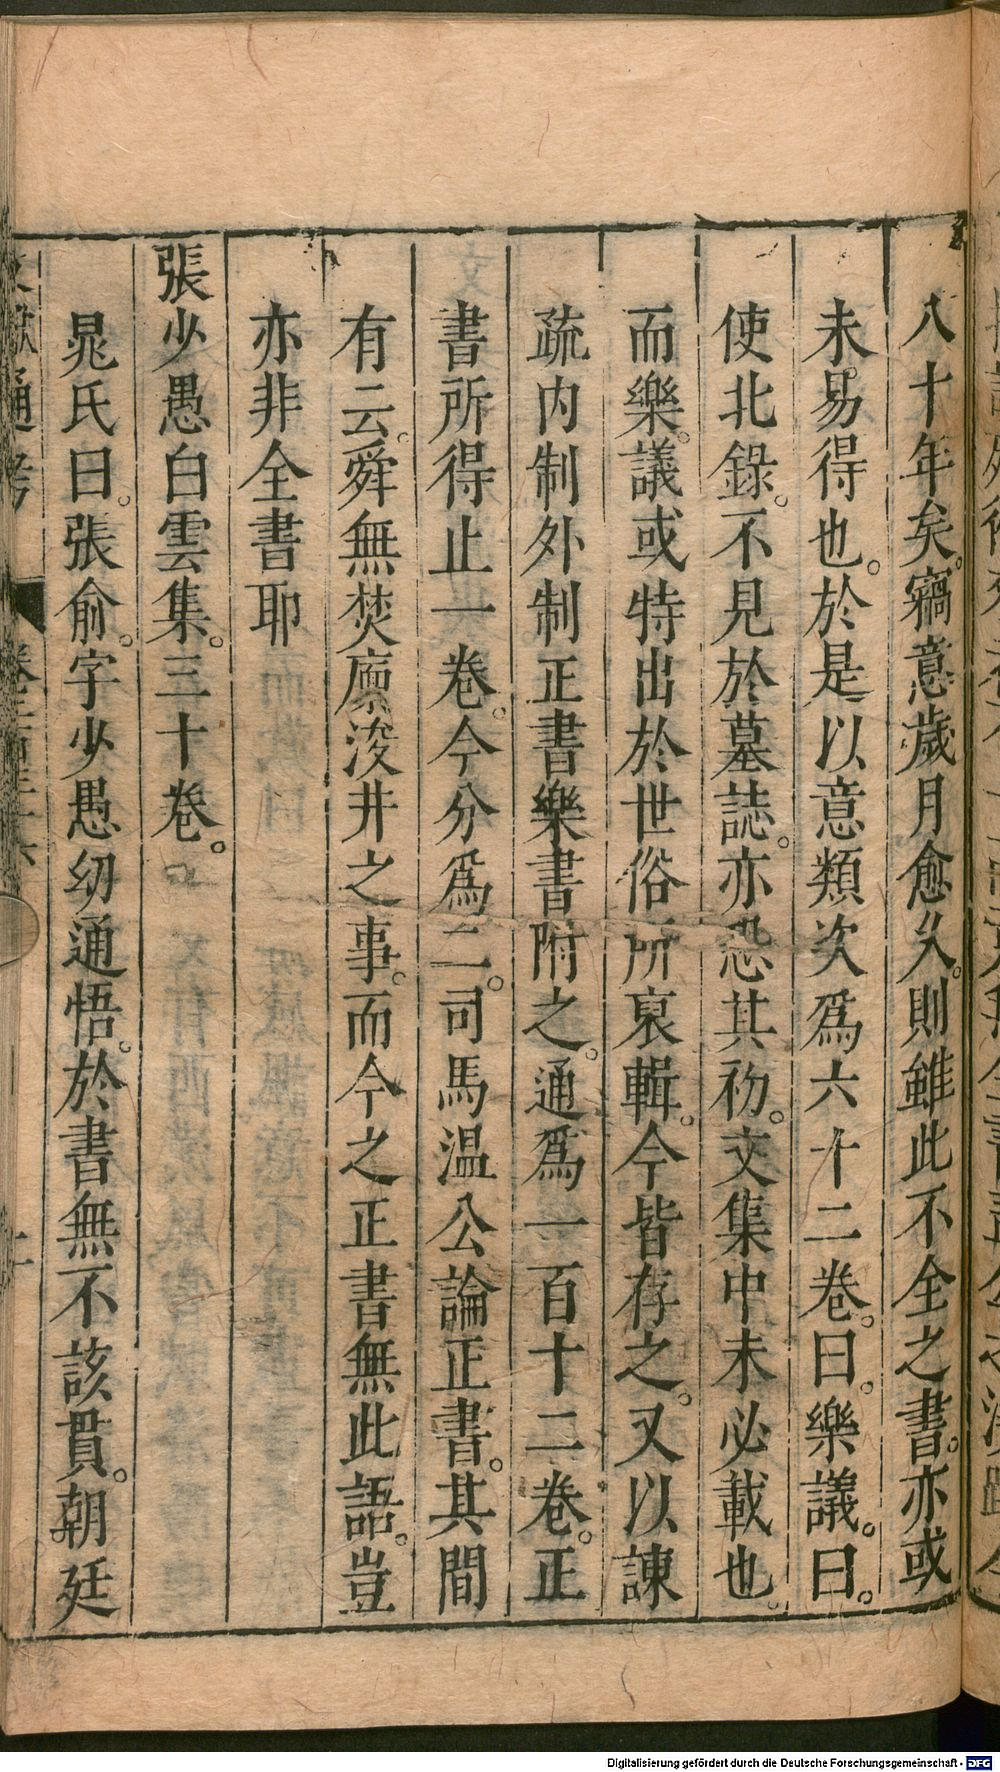 八十年矣。竊意歲月愈久。則雖此不全之書。亦或
未易得也。於是以意類次爲六十二卷。曰。樂議。曰。
使北錄。不見於墓誌。亦恐其初。文集中未必載也。
而樂。議或特出於世俗所裒輯。今皆存之。又以諫
疏内制外制正書樂書附之。通爲一百十二卷。正
書所得止一卷。今分爲二。司馬温公論正書。其間
有云。舜無焚廩浚井之事。而今之正書無此語。豈
亦非全書耶
張少愚白雲集。三十卷。
晁氏曰。張俞。字少愚幼通悟。於書無不該貫。朝廷
文獻通考
Digitalisierung gefördert durch die Deutsche Forschungsgemeinschaft - DFG